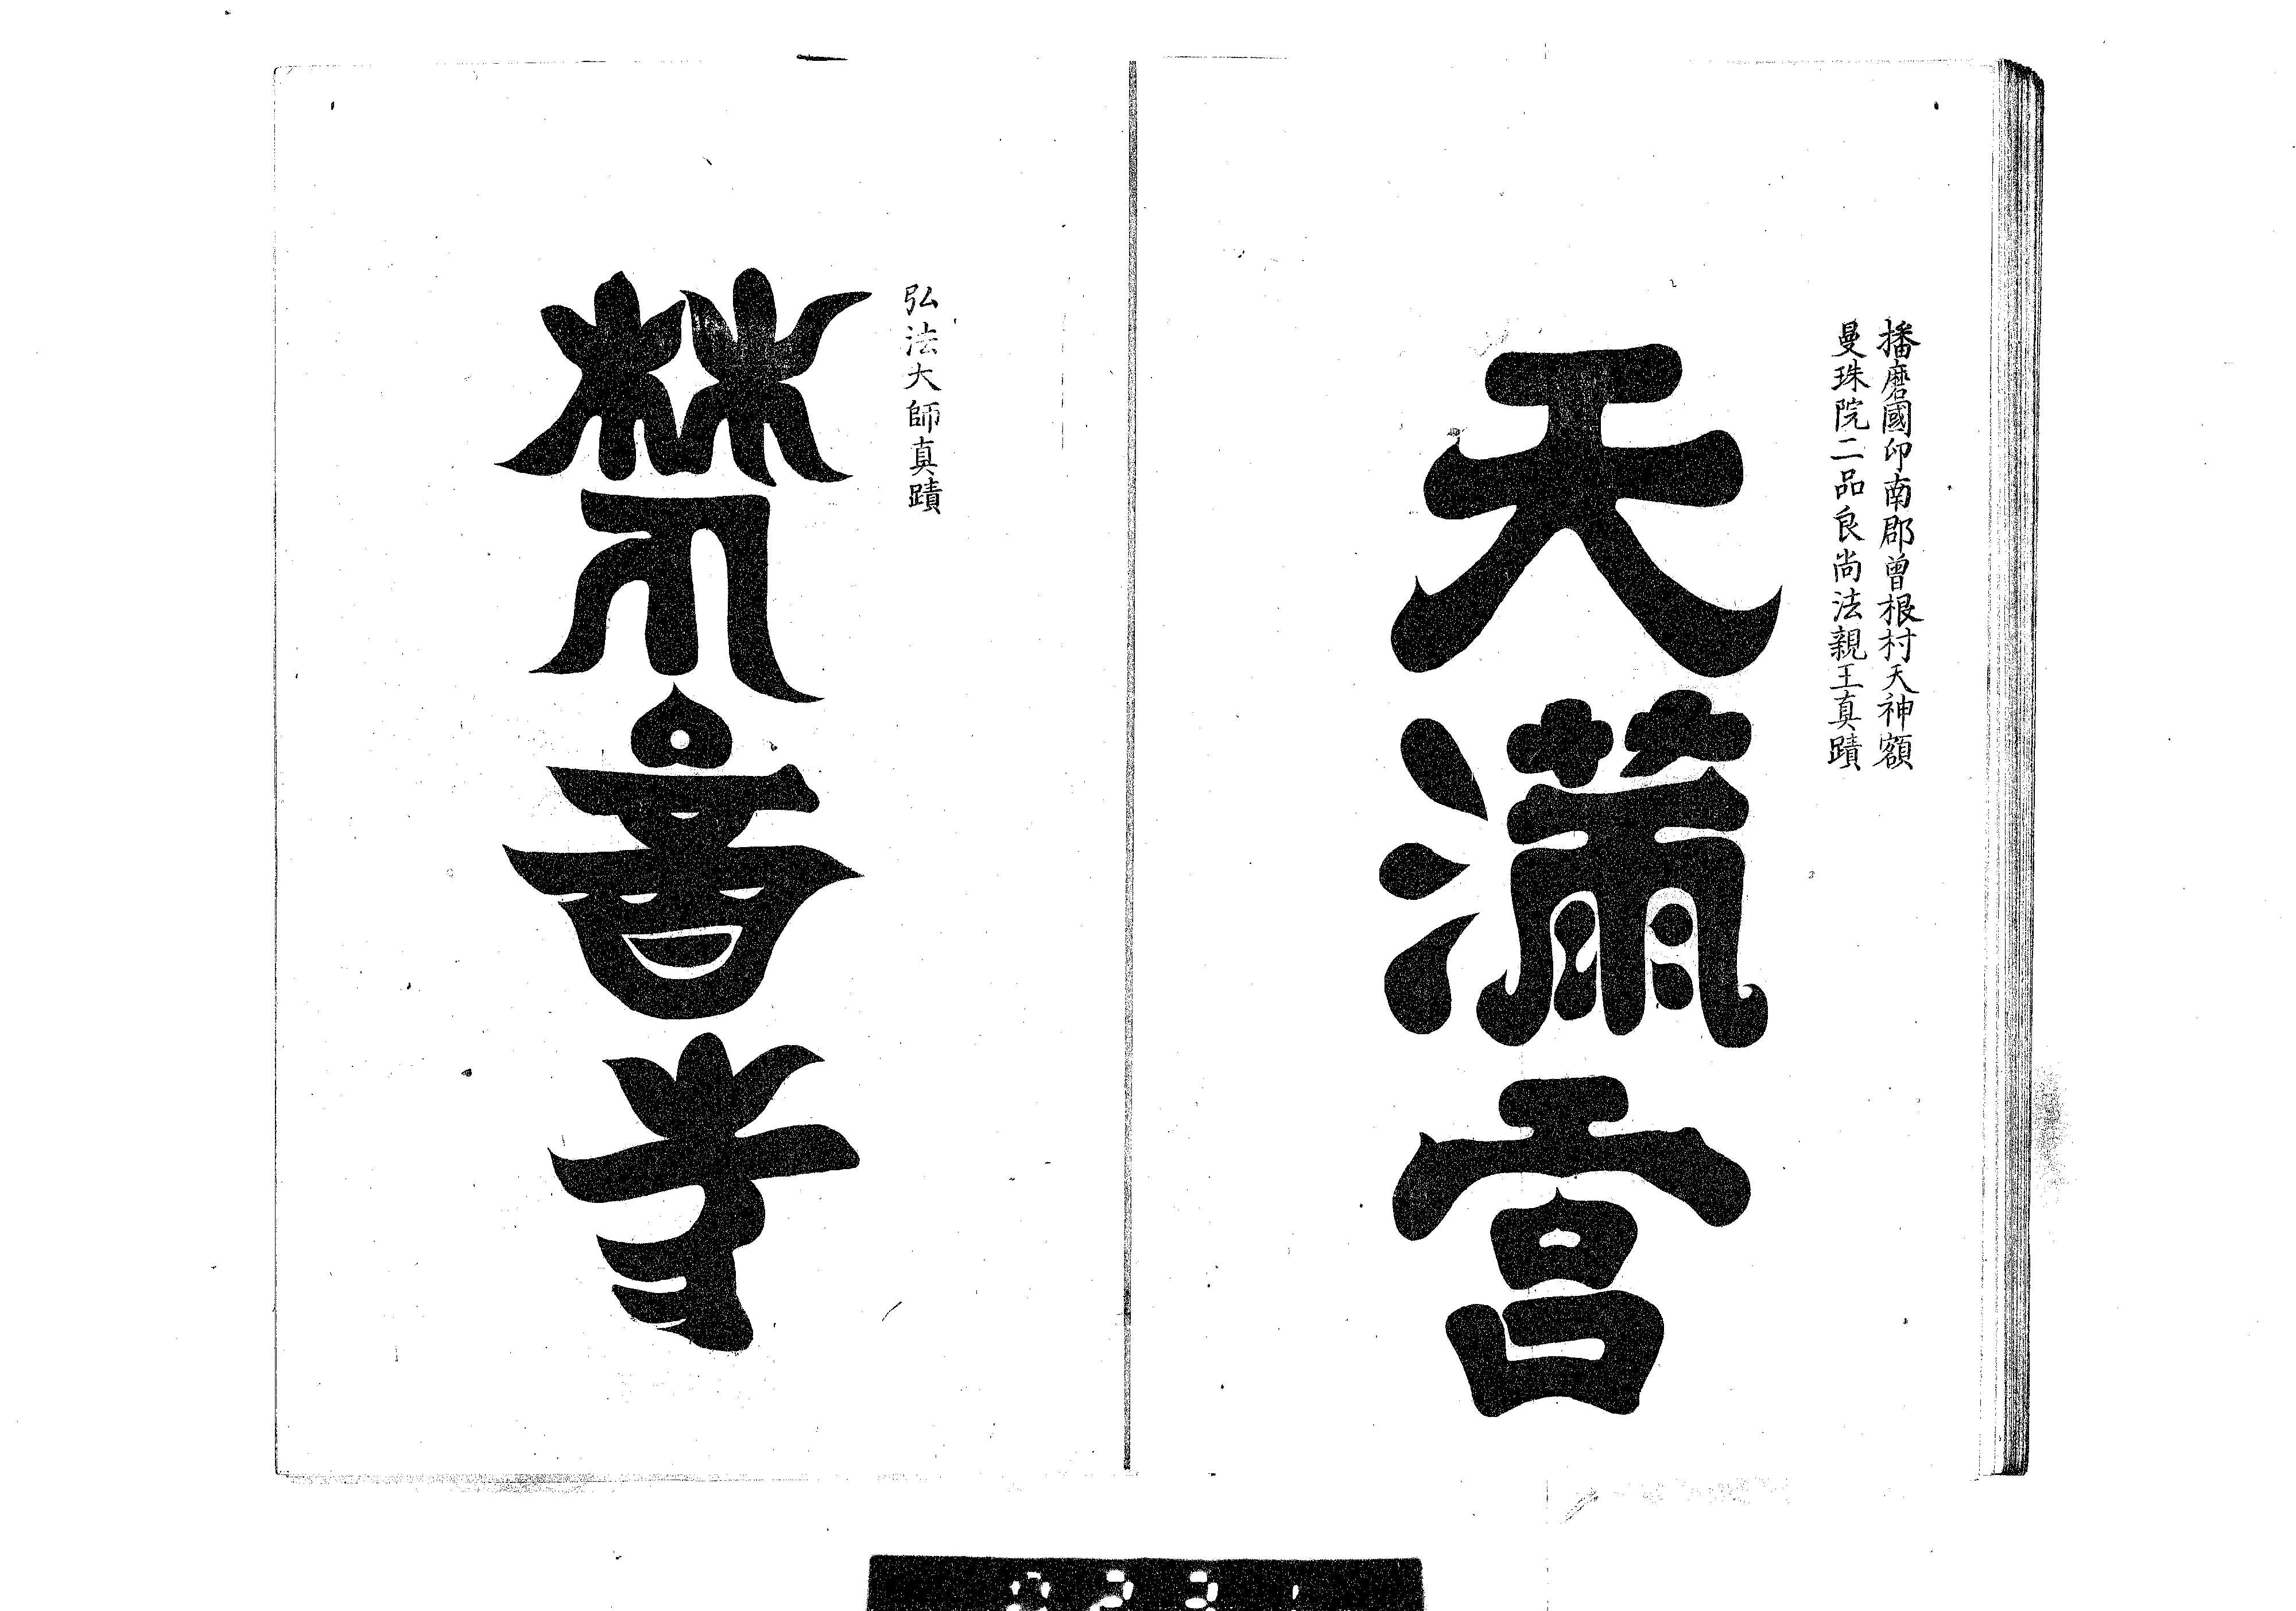 播磨國印南郡曽根村天神額
曼珠院二品良尚法親王真蹟
天滿宮
弘法大師真蹟
梵音寺